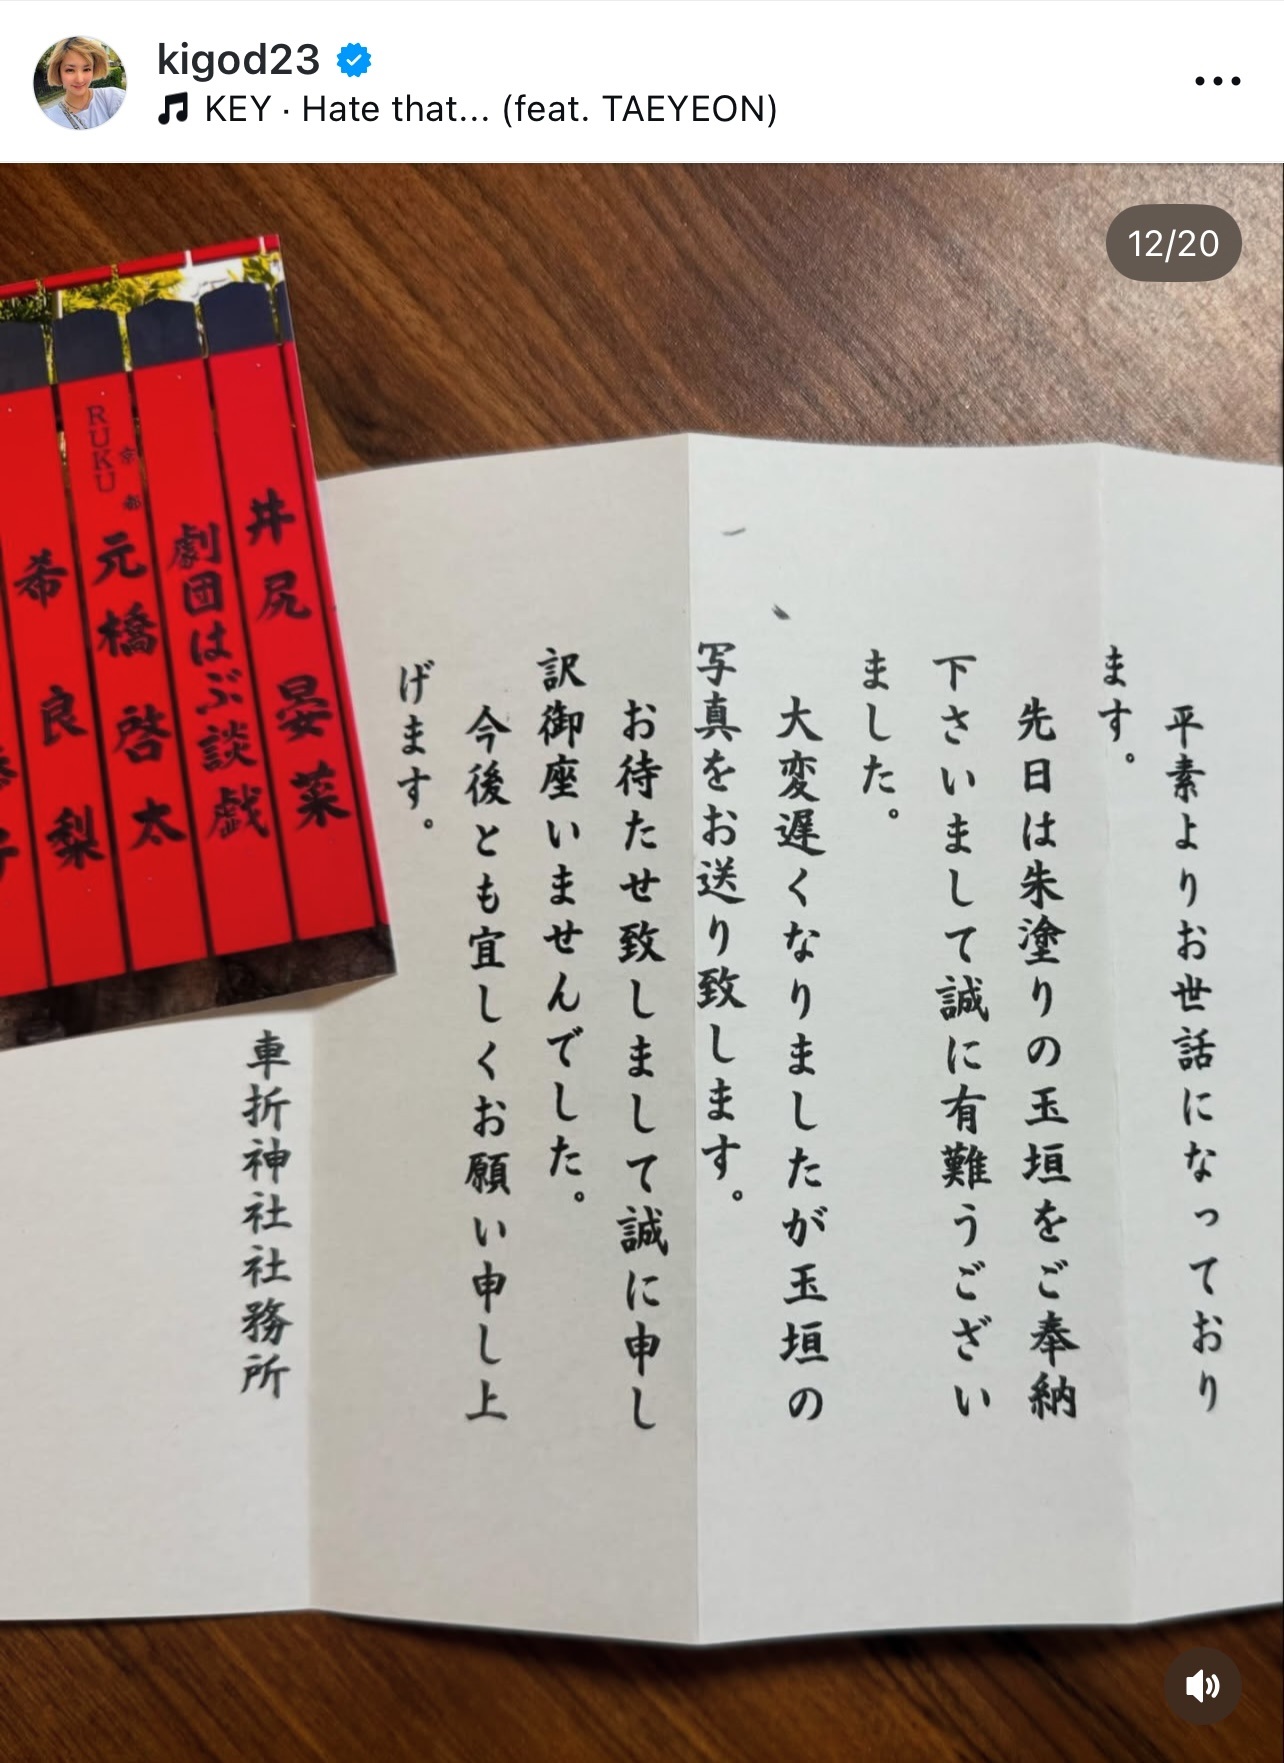 kigod23
KEY · Hate that... (feat. TAEYEON)
12/20
平素よりお世話になっており
ます。
先日は朱塗りの玉垣をご奉納
下さいまして誠に有難うござい
ました。
大変遅くなりましたが玉垣の
写真をお送り致します。
お待たせ致しまして誠に申し
訳御座いませんでした。
今後とも宜しくお願い申し上
げます。
車折神社社務所
井尻晏菜
劇団はぶ談戯
京都
RUKU 元橋啓太
希良梨